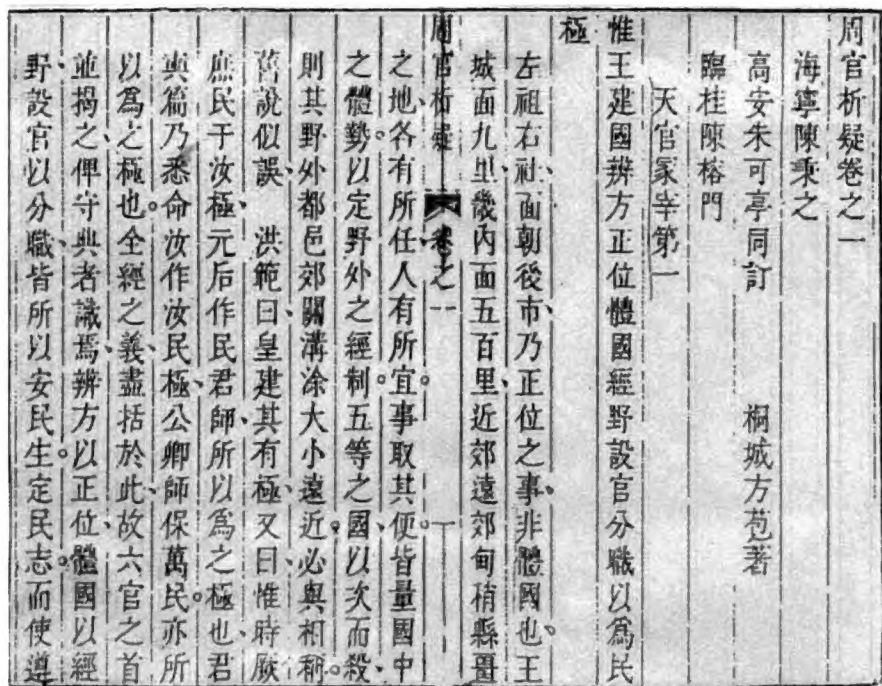 周官析疑卷之一
海寧陳秉之
高安朱可亭同訂 桐城方苞著
臨桂陳榕門
天官冢宰第一
惟王建國辨方正位體國經野設官分職以爲民
極
左祖右社面朝後市乃正位之事非體國也王
城面九里畿內面五百里近郊遠郊甸稍縣畺
周官析疑 卷之一 一
之地各有所任人有所宜事取其便皆量國中
之體勢以定野外之經制五等之國以次而殺
則其野外都邑郊關溝涂大小遠近必與相稱
舊說似誤 洪範曰皇建其有極又曰惟時厥
庶民于汝極元后作民君師所以爲之極也君
奭篇乃悉命汝作汝民極公卿師保萬民亦所
以爲之極也全經之義盡括於此故六官之首
並揭之俾守典者識焉辨方以正位體國以經
野設官以分職皆所以安民生定民志而使遵